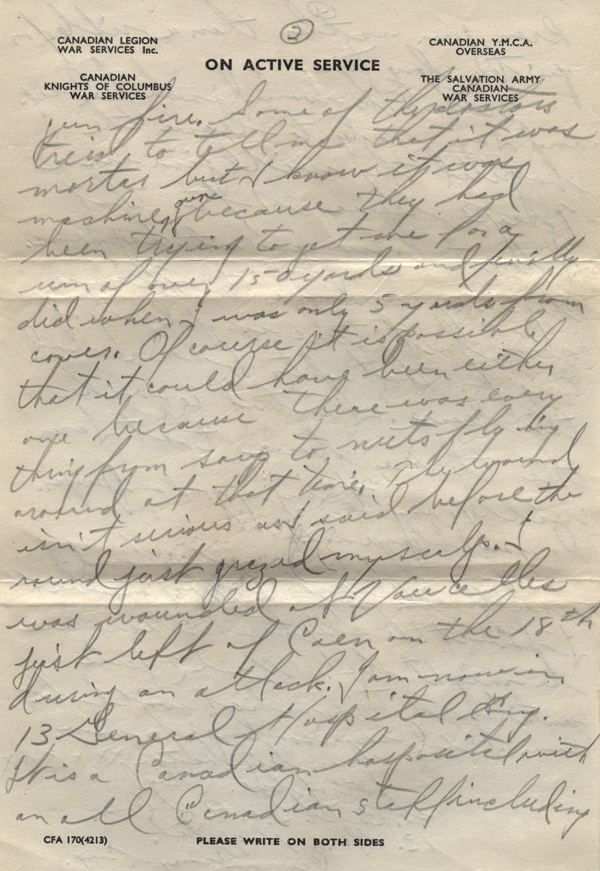 2
CANADIAN LEGION
WAR SERVICES Inc.
CANADIAN
KNIGHTS OF COLUMBUS
WAR SERVICES
ON ACTIVE SERVICE
CANADIAN Y.M.C.A.
OVERSEAS
THE SALVATION ARMY
CANADIAN
WAR SERVICES
gun fire. Some of the doctors
tried to tell me that it was
mortar but I know it was
machine gun because they had
been trying to get me for a
run of over 150 yards and finally
did when I was only 5 yards from
cover. Of course it is possible
that it could have been either
one because there was every
thing from soup to nuts flying
around at that time. My wound
isn't serious as I said before the
round just grazed my scalp. I
was wounded at Vaucelles
just left of Caen on the 18th
during an attack. I am now in
13 General Hospital Eng.
It is a Canadian hospital with
an all Canadian staff including
CFA 170(4213)
PLEASE WRITE ON BOTH SIDES